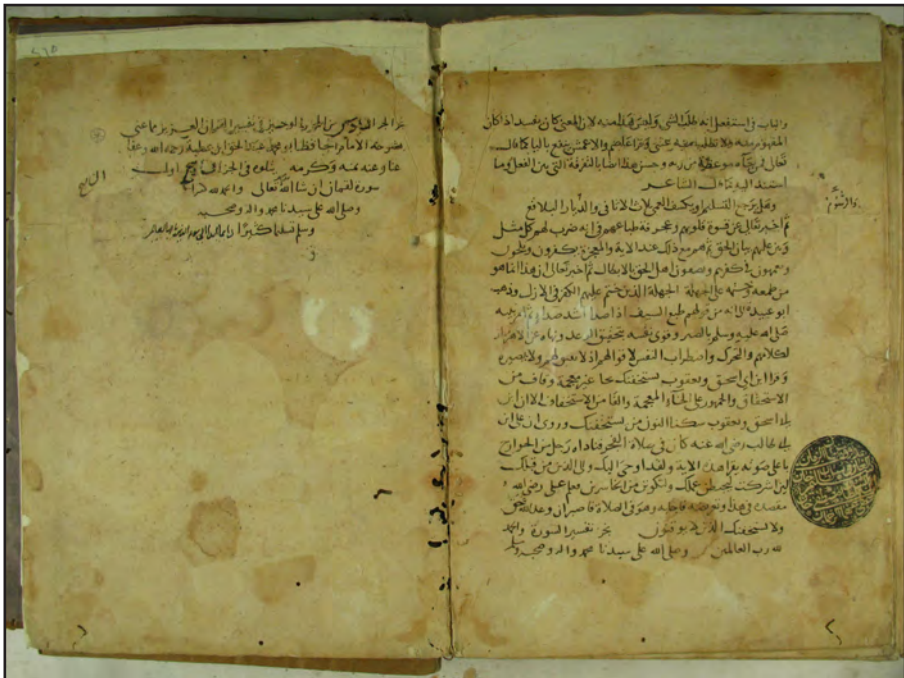 والباب في استفعل انه طلب الشي وليس هذا منه لان المعنى كان يفسد اذا كان
المفهوم منه ولا تطلب منه عتبى وقرا عاصم والاعمش ينفع بالياء كما قال
تعالى فمن جاءه موعظة من ربه وحسن هذا ايضا بالتفرقة التي بين الفعل وما
اسند اليه كما قال الشاعر
وهل يرجع التسليم او يكشف العمى ثلاث الاثافي والديار البلاقع
والرسوم
ثم اخبر تعالى عن قسوة قلوبهم وعجرفة طباعهم في انه ضرب لهم كل مثل
وبين عليهم بيان الحق ثم هم مع ذلك عند الاية والمعجزة يكفرون ويلجون
ويعمهون في كفرهم ويصفون اهل الحق بالابطال ثم اخبر تعالى ان هذا انما هو
من طبعه وختمه على الجهلة الذين ختم عليهم الكفر في الازل وذهب
ابو عبيدة الى انه من قولهم طبع السيف اذا صدا اشد صدا ثم امر نبيه
صلى الله عليه وسلم بالصبر وقوى نفسه بتحقيق الوعد ونهاه عن الاهتزاز
لكلامهم والتحرك واضطراب النفس لاقوالهم اذ لا يقين لهم ولا بصيرة
وقرا ابن ابي اسحق ويعقوب يستحقنك بحا غير معجمة وقاف من
الاستحقاق والجمهور على الخاء المعجمة والفا من الاستخفاف الا ان ابن
ابي اسحق ويعقوب سكنا النون من يستخفنك وروي ان علي بن
ابي طالب رضي الله عنه كان في صلاة الفجر فناداه رجل من الخوارج
باعلى صوته يقرا هذه الاية ولقد اوحي اليك والى الذين من قبلك
لين اشركت ليحبطن عملك ولتكونن من الخاسرين فعلم علي رضي الله
مقصده في هذا وتعريضه فاجابه وهو في الصلاة فاصبر ان وعد الله حق
ولا يستخفنك الذين لا يوقنون نجز تفسير السورة والحمد
لله رب العالمين وصلى الله على سيدنا محمد واله وصحبه وسلم
نجز الجزء السادس من المحرر الوجيز في تفسير القران العزيز مما عني
بوضعه الامام الحافظ ابو محمد عبد الحق ابن عطية رحمه الله وعفا
عنا وعنه بمنه وكرمه يتلوه في الجزء السابع اول
سورة لقمان ان شا الله تعالى والحمد لله
وصلى الله على سيدنا محمد واله وصحبه
وسلم تسليما كثيرا